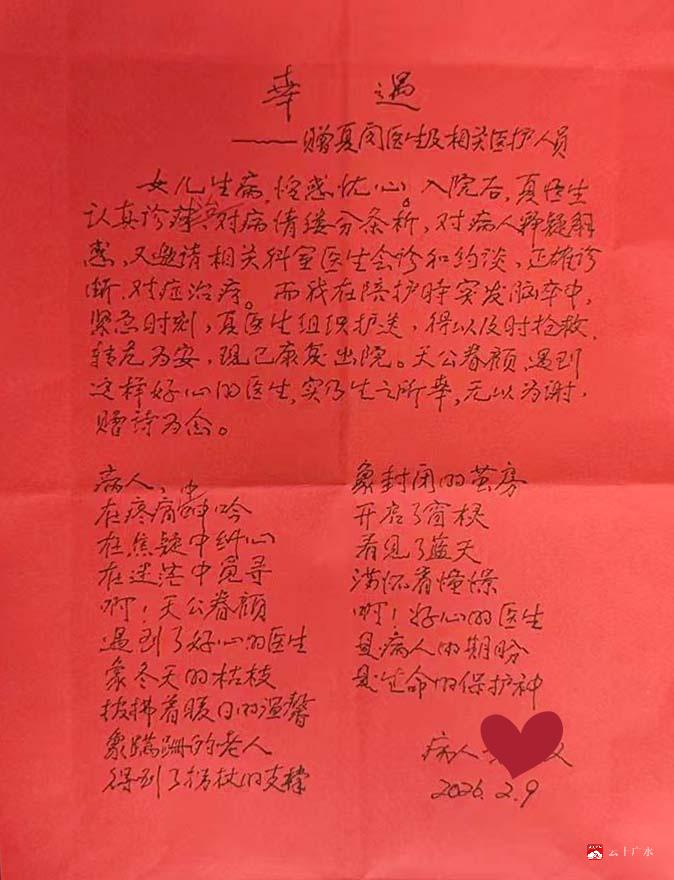 幸遇
——赠夏闵医生及相关医护人员
女儿生病,惶惑忧心。入院后,夏医生
认真诊疗,对病情缕分条析,对病人释疑解
惑,又邀请相关科室医生会诊和约谈,正确诊
断,对症治疗。而我在陪护时突发脑卒中,
紧急时刻,夏医生组织护送,得以及时抢救,
转危为安,现已康复出院。天公眷顾,遇到
这样好心的医生,实乃生之所幸,无以为谢,
赠诗为念。
病人,
在疼痛中呻吟
在焦疑中纠心
在迷茫中觅寻
啊!天公眷顾
遇到了好心的医生
象冬天的枯枝
披拂着暖日的温馨
象蹒跚的老人
得到了拐杖的支撑
象封闭的茧房
开启了窗棂
看见了蓝天
满怀着憧憬
啊!好心的医生
是病人的期盼
是生命的保护神
病人
2026.2.9
云上广水